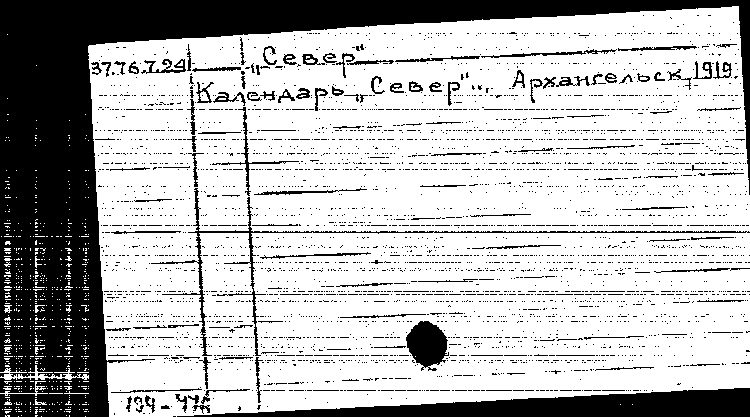 37.76.7.24 „Север"
Календарь „Север"... Архангельск, 1919.
194-47к